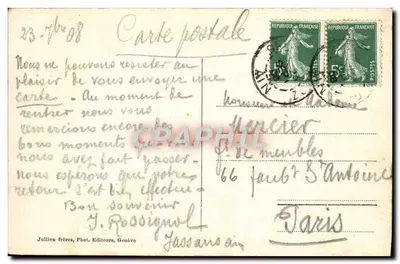 23-7bre 08
Carte postale
Nous ne pouvons résister au
plaisir de vous envoyer une
carte. - Au moment de
rentrer nous vous
remercions encore des
bons moments que vous
nous avez fait passer.
nous espérons que votre
retour s'est bien effectué.
Bon souvenir
J. Rossignol
REPUBLIQUE FRANÇAISE
REPUBLIQUE FRANÇAISE
POSTES
POSTES
Monsieur Madame
Mercier
ft. de meubles
66 faubt St Antoine
Paris
CPARAMA
Jullien frères, Phot. Editeurs, Genève